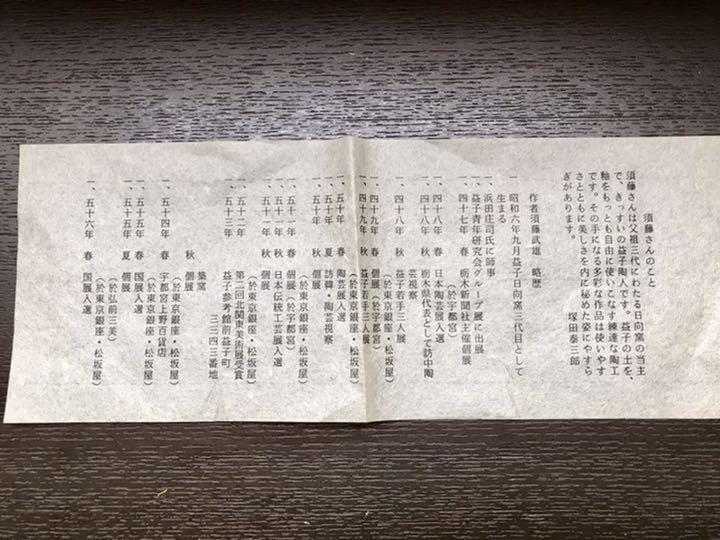 須藤さんのこと
須藤さんは父祖三代にわたる日向窯の当主
で、きっすいの益子陶人です。益子の土を、
釉をもっとも自由に使いこなす練達な陶工
です。その手になる多彩な作品は使いやす
さとともに美しさを内に秘めた姿にやすら
ぎがあります。
塚田泰三郎
作者須藤武雄 略歴
一、昭和六年九月益子日向窯三代目として
生まる
一、浜田庄司氏に師事
一、益子青年研究会グループ展に出展
一、四十七年 春 栃木新聞社主催個展
(於宇都宮)
一、四十八年 春 日本陶芸展入選
一、四十八年 秋 栃木県代表として訪中陶
芸視察
一、四十八年 秋 益子若手三人展
一、四十九年 春 個展(於宇都宮)
一、四十九年 秋 益子若手三人展
(於東京銀座・松坂屋)
一、五十年 春 陶芸展入選
一、五十年 夏 訪韓・陶芸視察
一、五十年 秋 個展
(於東京銀座・松坂屋)
一、五十一年 春 個展(於宇都宮)
一、五十一年 秋 日本伝統工芸展入選
一、五十二年 秋 個展
(於東京銀座・松坂屋)
一、五十二年 第二回北関東美術展受賞
一、五十三年 益子参考館前益子町
三三四三番地
築窯
秋 個展
(於東京銀座・松坂屋)
一、五十四年 春 宇都宮上野百貨店
(於東京銀座・松坂屋)
一、五十五年 春 国展入選
一、五十五年 夏 個展
(於弘前三美)
(於東京銀座・松坂屋)
一、五十六年 春 国展入選